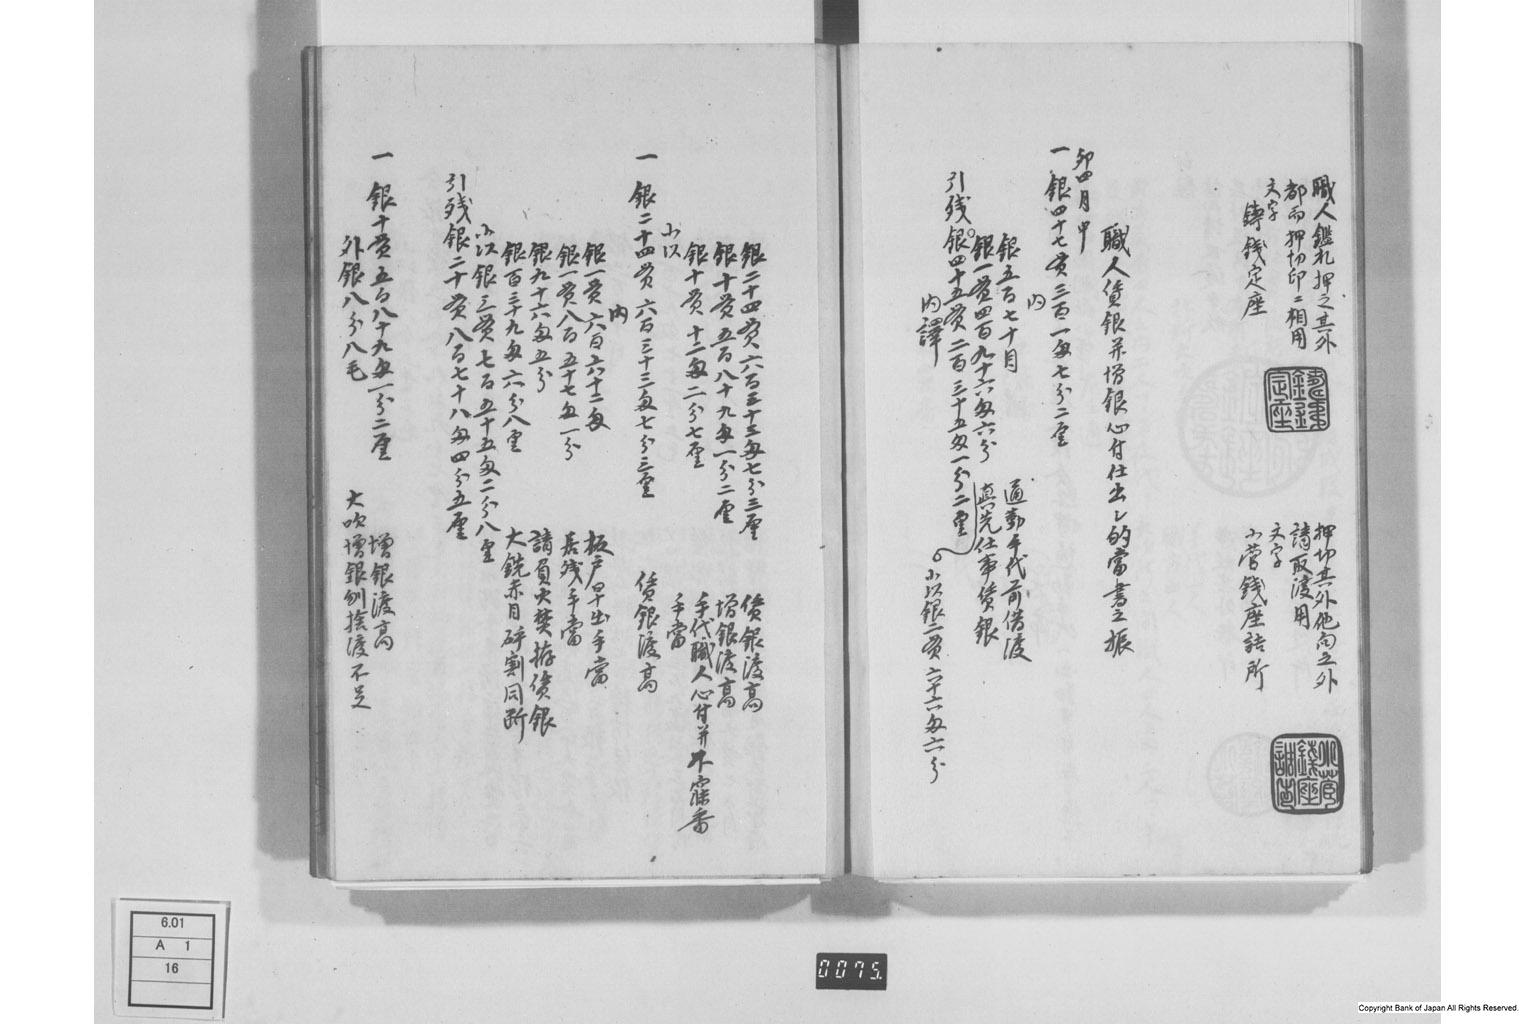 職人鑑札押之其外
都而押切印ニ相用
文字
鋳銭定座
押切其外他向之外
請取渡用
文字
小菅銭座詰所
小菅
銭座
職人賃銀并増銀心付仕出し的當書之振
卯四月中
一 銀四十七貫三百一匁七分二厘
内
銀五百七十目 通勤手代前借渡
銀一貫四百九十六匁六分 真先仕事賃銀
小以銀二貫六十六匁六分
引残銀四十五貫二百三十五匁一分二厘
内譯
銀二十四貫六百三十三匁七分三厘 賃銀渡高
銀十貫五百八十九匁一分二厘 増銀渡高
銀十貫十二匁二分七厘 手代職人心付并不寐番
手當
小以
一 銀二十四貫六百三十三匁七分三厘 賃銀渡高
内
銀一貫六百六十二匁 板戸早出手當
銀一貫八百五十七匁一分 居残手當
銀九十六匁五分 請負火焚拵賃銀
銀百三十九匁六分八厘 大銑赤目砕割同断
小以銀三貫七百五十五匁二分八厘
引残銀二十貫八百七十八匁四分五厘
一 銀十貫五百八十九匁一分二厘 増銀渡高
外銀八分八毛 大吹増銀割捨渡不足
6.01
A 1
16
0075.
Copyright Bank of Japan All Rights Reserved.